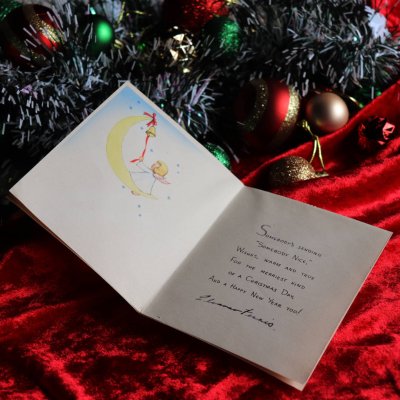 Somebody's sending
"Somebody Nice,"
Wishes warm and true
For the merriest kind
of a Christmas Day
And a Happy New Year too!